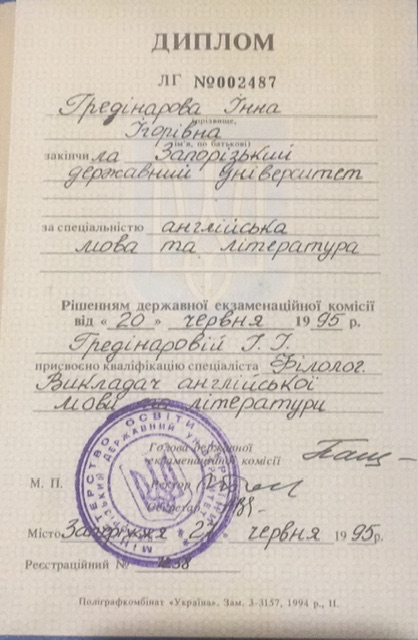 ДИПЛОМ
ЛГ №002487
Гредінарова Інна
прізвище,
Ігорівна
(ім'я, по батькові)
закінчила Запорізький
державний університет
за спеціальністю англійська
мова та література
Рішенням державної екзаменаційної комісії
від « 20 » червня 1995 р.
Гредінаровій І. І.
присвоєно кваліфікацію спеціаліста Філолог.
Викладач англійської
мови та літератури
Голова державної
екзаменаційної комісії
М. П. Ректор
Секретар
Місто Запоріжжя 27 червня 1995 р.
Реєстраційний № 1258
Поліграфкомбінат «Україна». Зам. 3-3157, 1994 р., II.